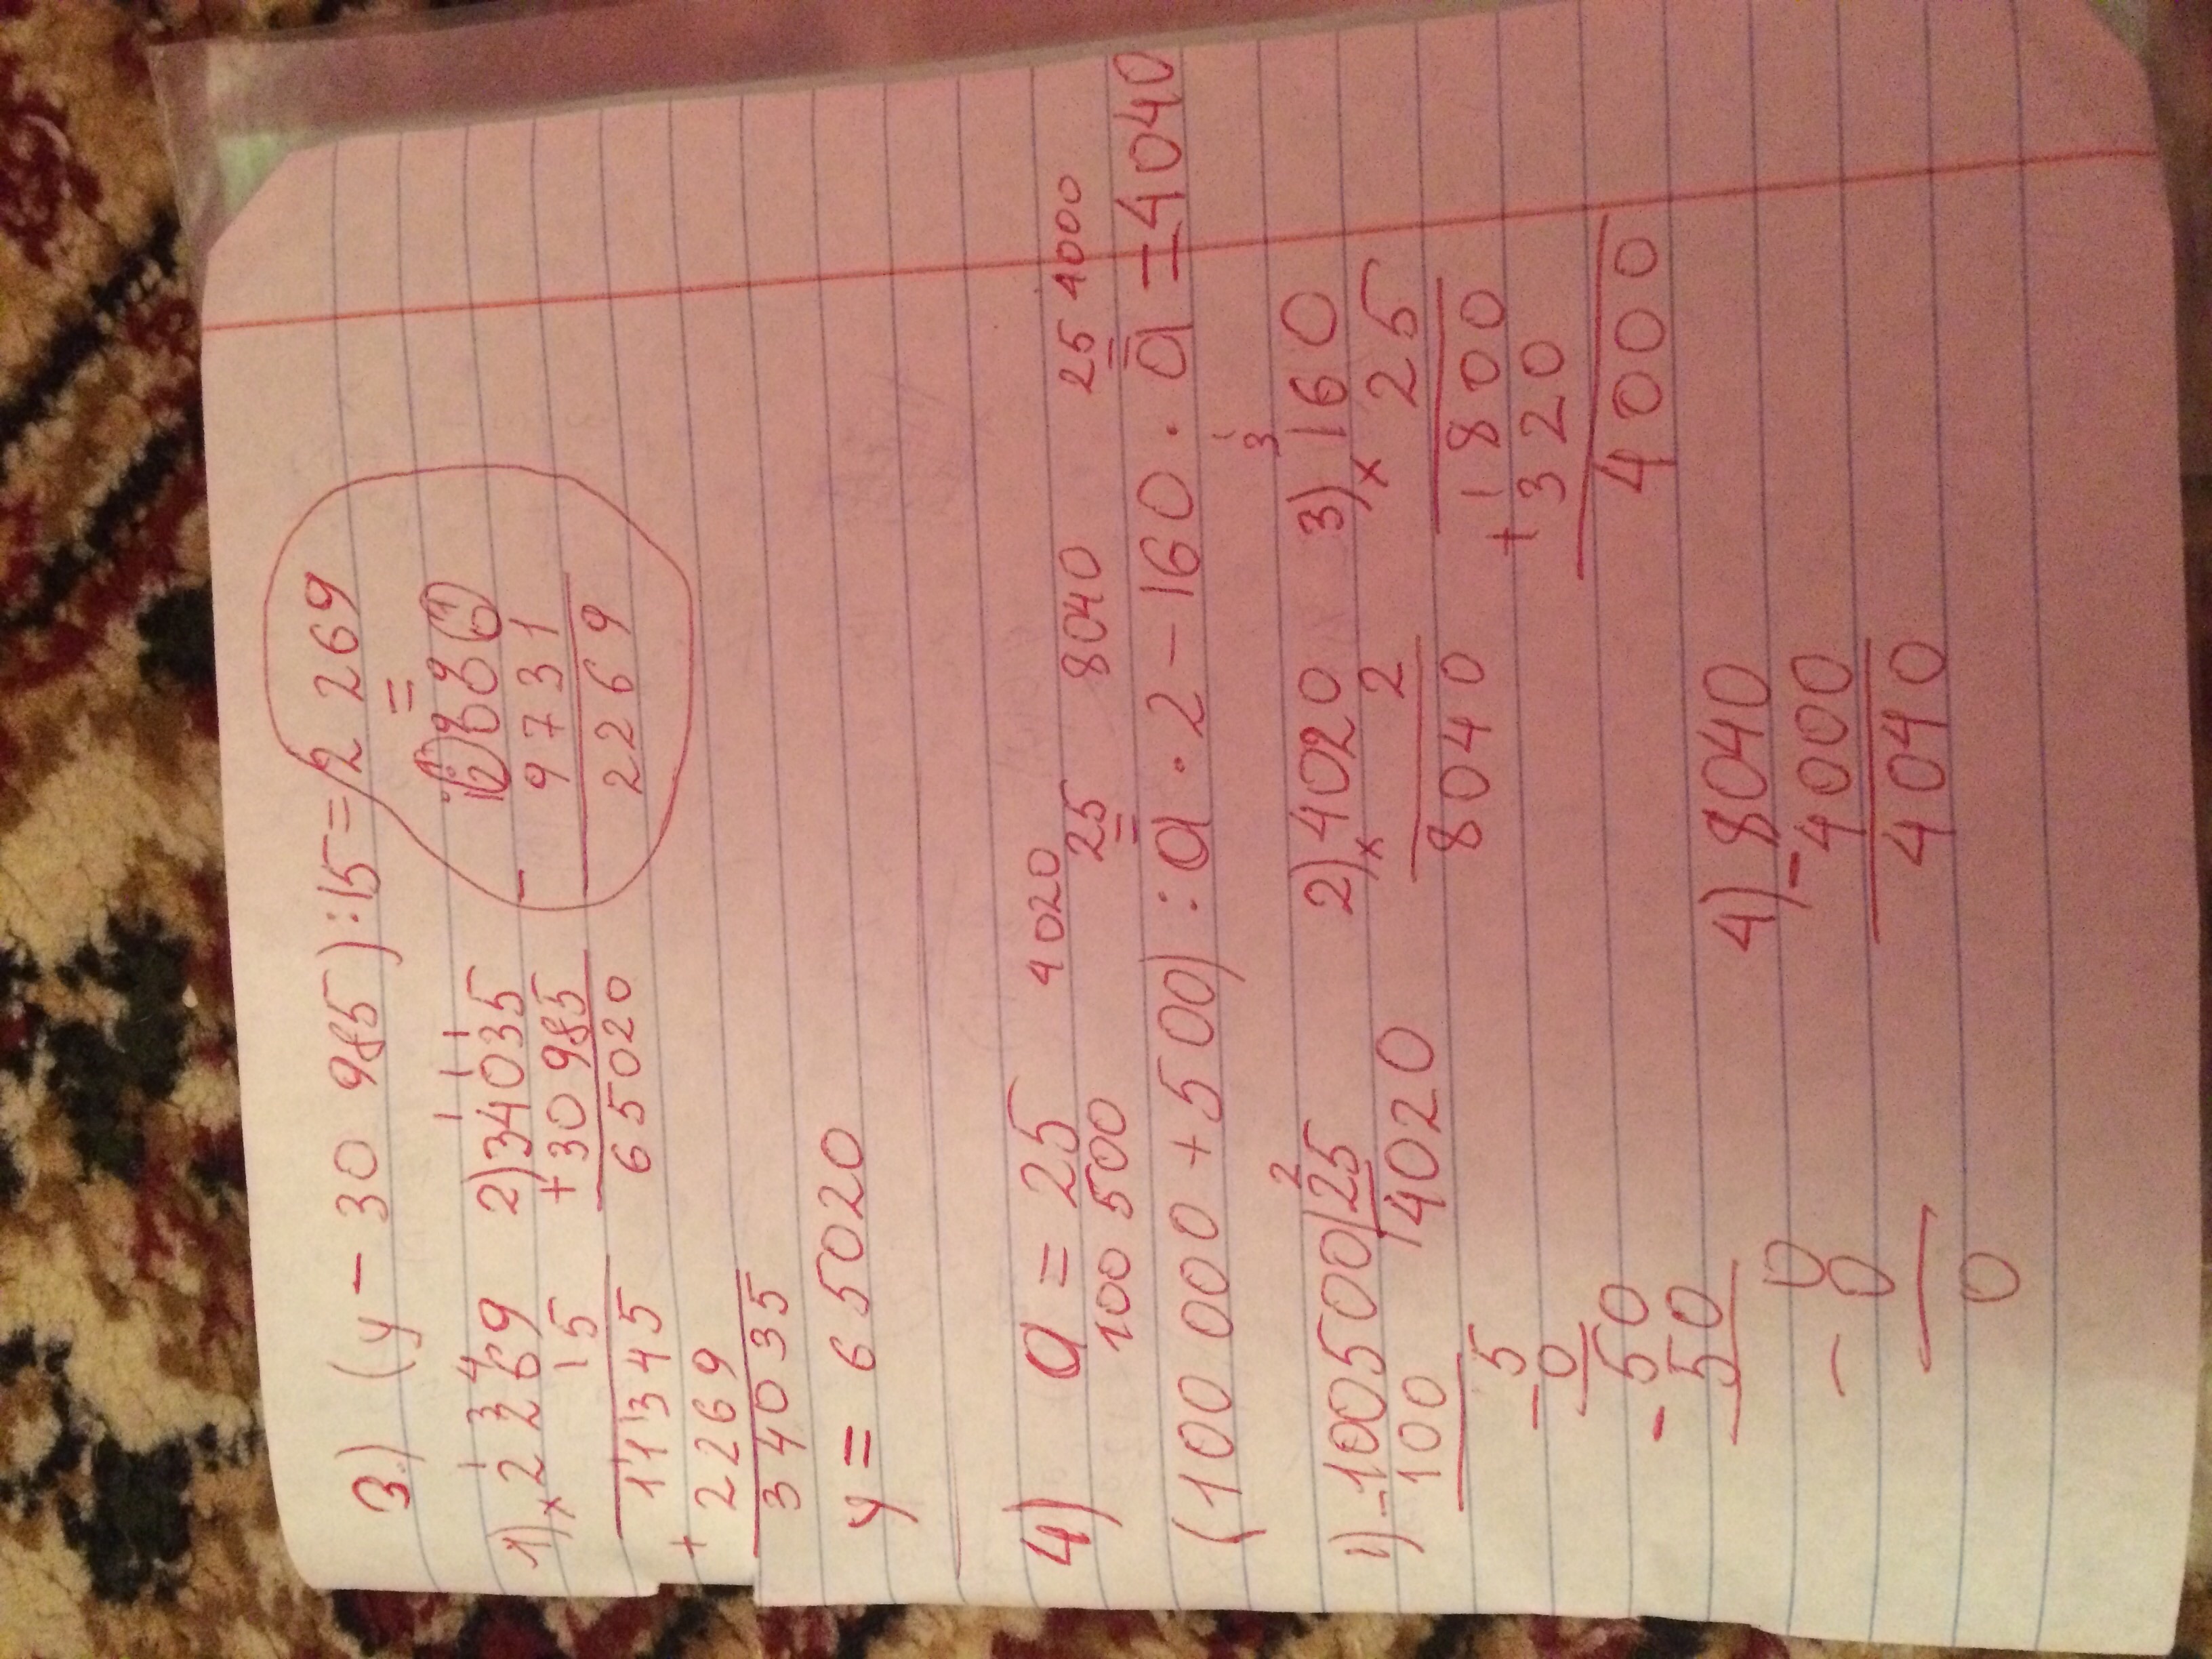 3) (y - 30 985) : 15 = 2 269
=
1) 1 3 4
× 2269
15
11345
+ 2269
34035
2) 1 1 1
34035
+ 30985
65020
12000
- 9731
2269
y = 65020
4) a = 25
100 500 4020 25 8040 25 4000
(100 000 + 500) : a · 2 - 160 · a = 4040
1) - 100500 | 25
2
100 4020
5
- 0
50
- 50
0
- 0
0
2) × 4020
2
8040
1
3
3) × 160
25
1800
+ 320
4000
4) - 8040
4000
4040